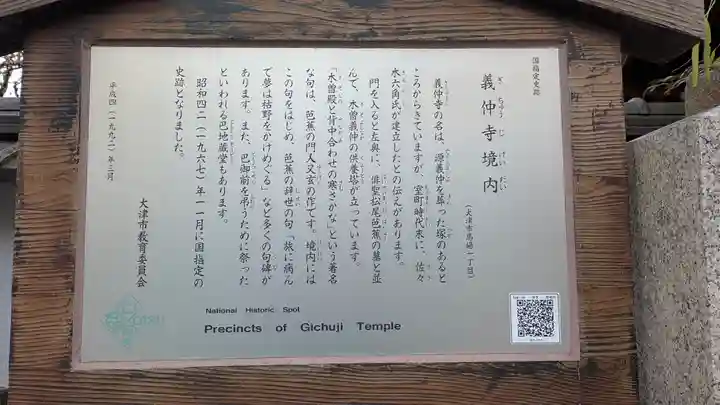 国指定史跡
義仲寺境内
ぎちゅうじけいだい
(大津市馬場一丁目)
義仲寺の名は、源義仲を葬った塚のあると
ころからきていますが、室町時代末に、佐々
木六角氏が建立したとの伝えがあります。
門を入ると左奥に、俳聖松尾芭蕉の墓と並
んで、木曽義仲の供養塔が立っています。
「木曽殿と背中合わせの寒さかな」という著名
な句は、芭蕉の門人又玄の作です。境内には
この句をはじめ、芭蕉の辞世の句「旅に病ん
で夢は枯野をかけめぐる」など多くの句碑が
あります。また、巴御前を弔うために祭った
といわれる巴地蔵堂もあります。
昭和四二(一九六七)年一一月に国指定の
史跡となりました。
平成四(一九九二)年三月
大津市教育委員会
National Historic Spot
Precincts of Gichuji Temple